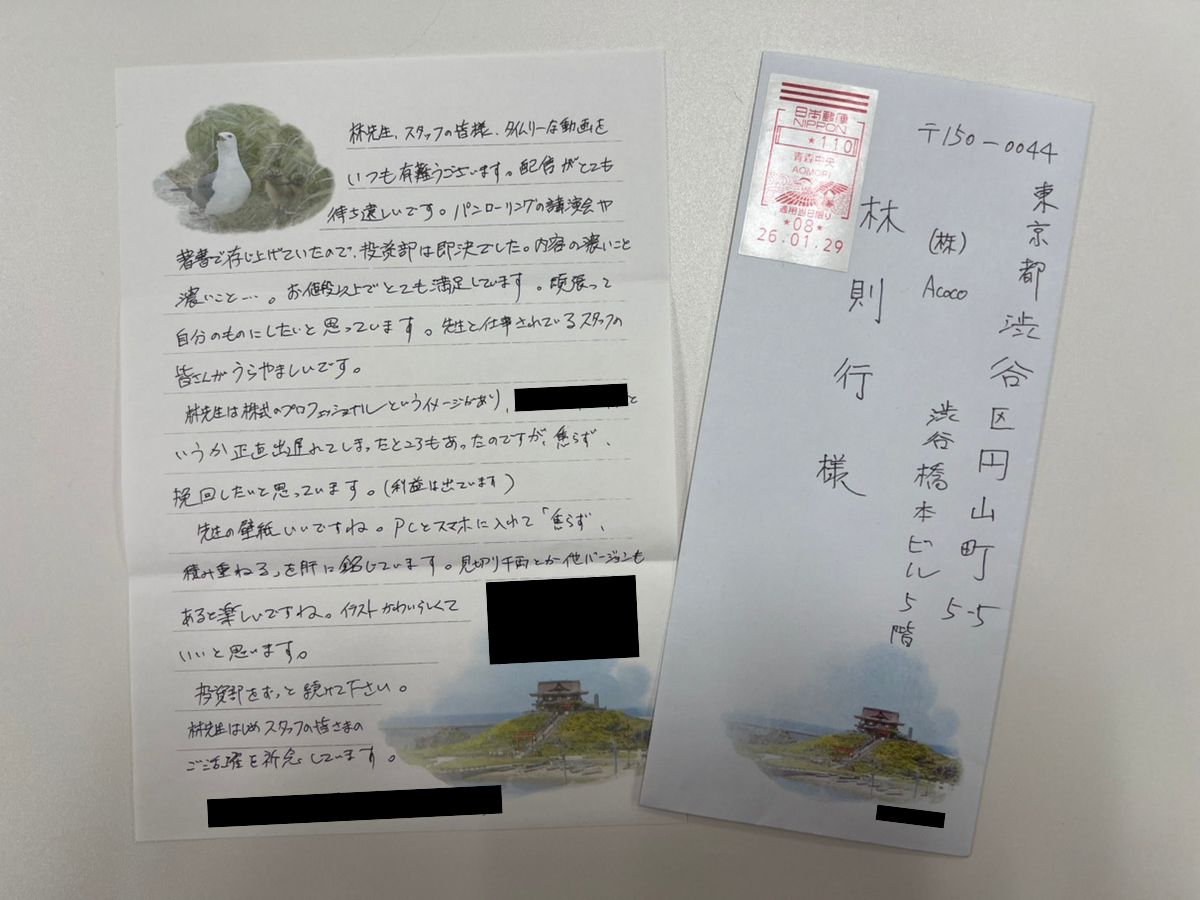 林先生、スタッフの皆様、タイムリーな動画を
いつも有難うございます。配信がとても
待ち遠しいです。パンローリングの講演会や
著書で存じ上げていたので、投資部は即決でした。内容の濃いこと
濃いこと…。お値段以上でとても満足しています。頑張って
自分のものにしたいと思っています。先生と仕事されているスタッフの
皆さんがうらやましいです。
林先生は株式のプロフェッショナルというイメージがあり、
と
いうか正直出遅れてしまったところもあったのですが、焦らず、
挽回したいと思っています。(利益は出ています)
先生の壁紙いいですね。PCとスマホに入れて「焦らず、
積み重ねる」を肝に銘じています。見切り千両とか他バージョンも
あると楽しいですね。イラストかわいらしくて
いいと思います。
投資部をずっと続けて下さい。
林先生はじめスタッフの皆さまの
ご活躍を祈念しています。
日本郵便
NIPPON
*110
青森中央
AOMORI
適用当日限り
*08*
26.01.29
〒150-0044
東京都渋谷区円山町5-5
渋谷橋本ビル5階
(株)Acoco
林則行様